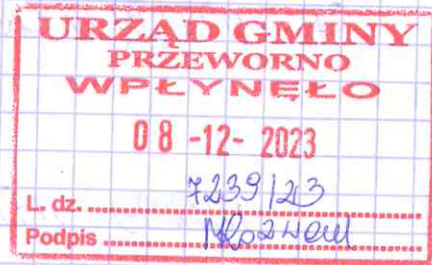 URZĄD GMINY
PRZEWORNO
WPŁYNĘŁO
08 -12- 2023
L. dz. 7239/23
Podpis